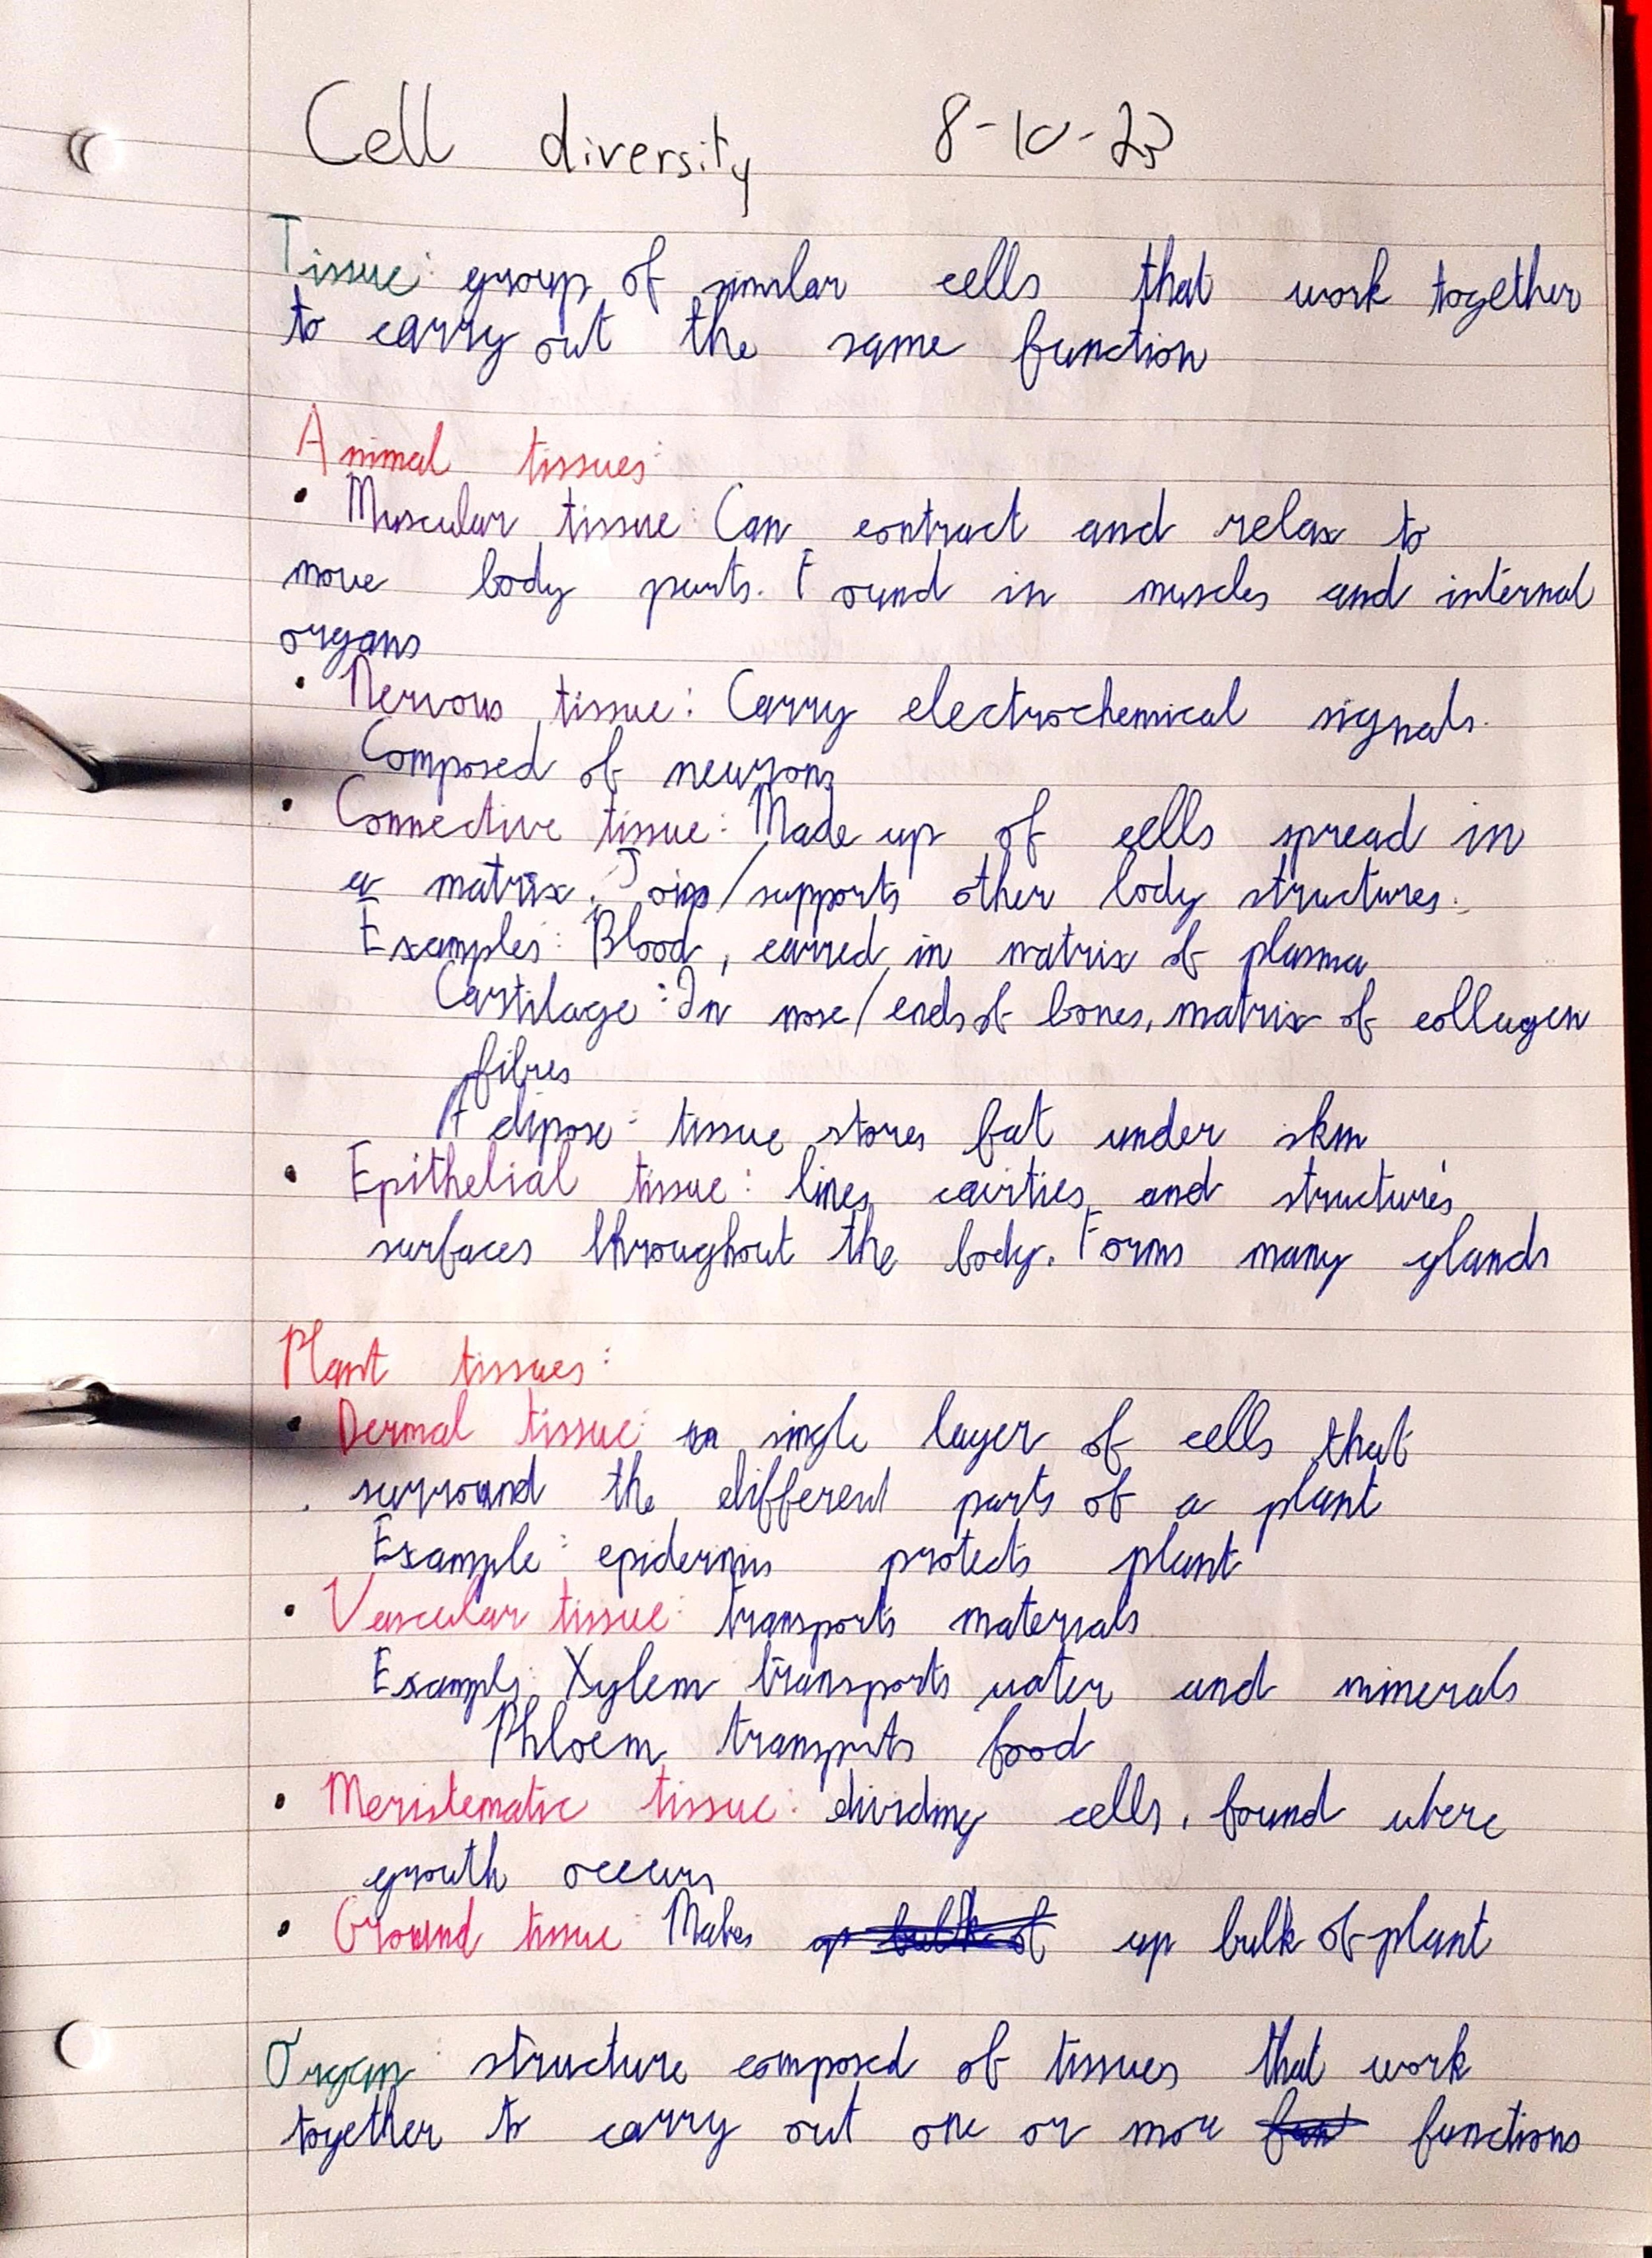 Cell diversity 8-10-23
Tissue: group of similar cells that work together
to carry out the same function
Animal tissues:
• Muscular tissue: Can contract and relax to
move body parts. Found in muscles and internal
organs
• Nervous tissue: Carry electrochemical signals.
Composed of neurons
• Connective tissue: Made up of cells spread in
a matrix. Joins/supports other body structures.
Examples: Blood, carred in matrix of plasma
Cartilage: In nose/ends of bones, matrix of collagen
fibres
Adipose: tissue stores fat under skin
• Epithelial tissue: lines cavities and structures
surfaces throughout the body. Forms many glands
Plant tissues:
• Dermal tissue: a single layer of cells that
surround the different parts of a plant
Example: epidermis protects plant
• Vascular tissue: transports materials
Example: Xylem transports water and minerals
Phloem transports food
• Meristematic tissue: dividing cells, found where
growth occurs
• Ground tissue: Makes up bulk of up bulk of plant
Organ: structure composed of tissues that work
together to carry out one or more functions